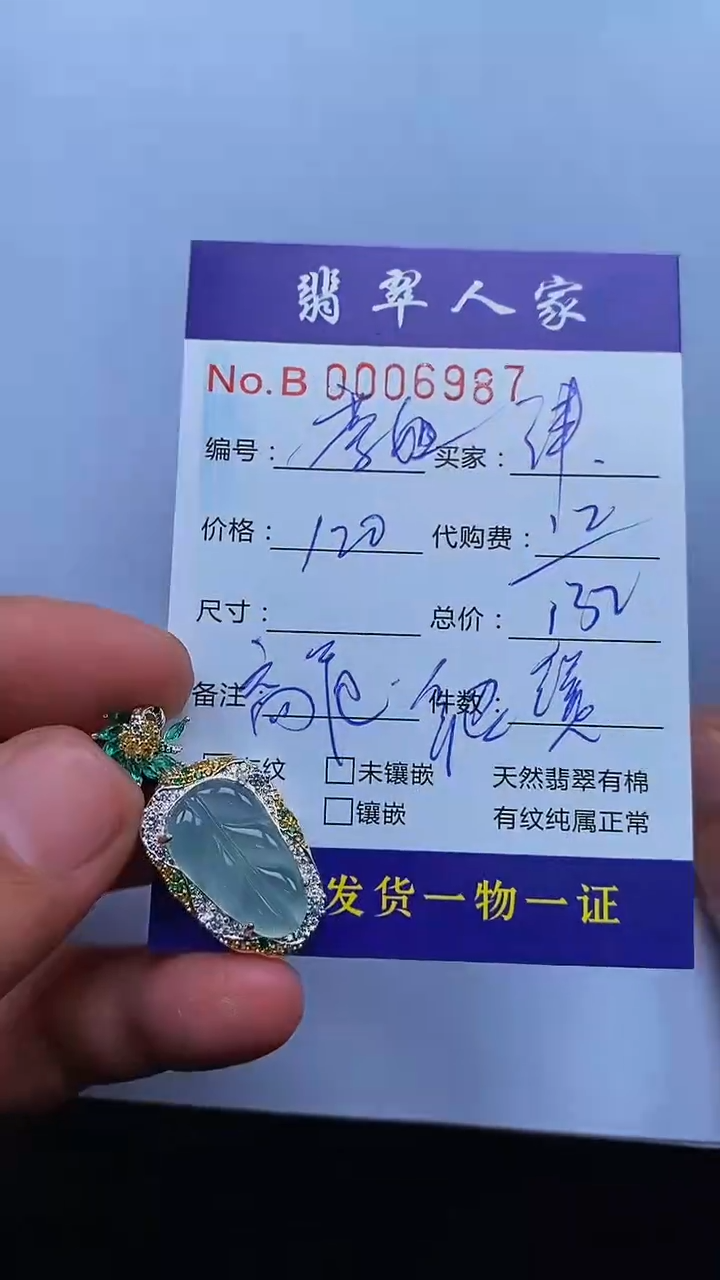 翡翠人家
No.B 0006987
编号： 买家：
价格：120 代购费：12
尺寸： 总价：132
备注 件数：
纹 未镶嵌 天然翡翠有棉
镶嵌 有纹纯属正常
发货一物一证